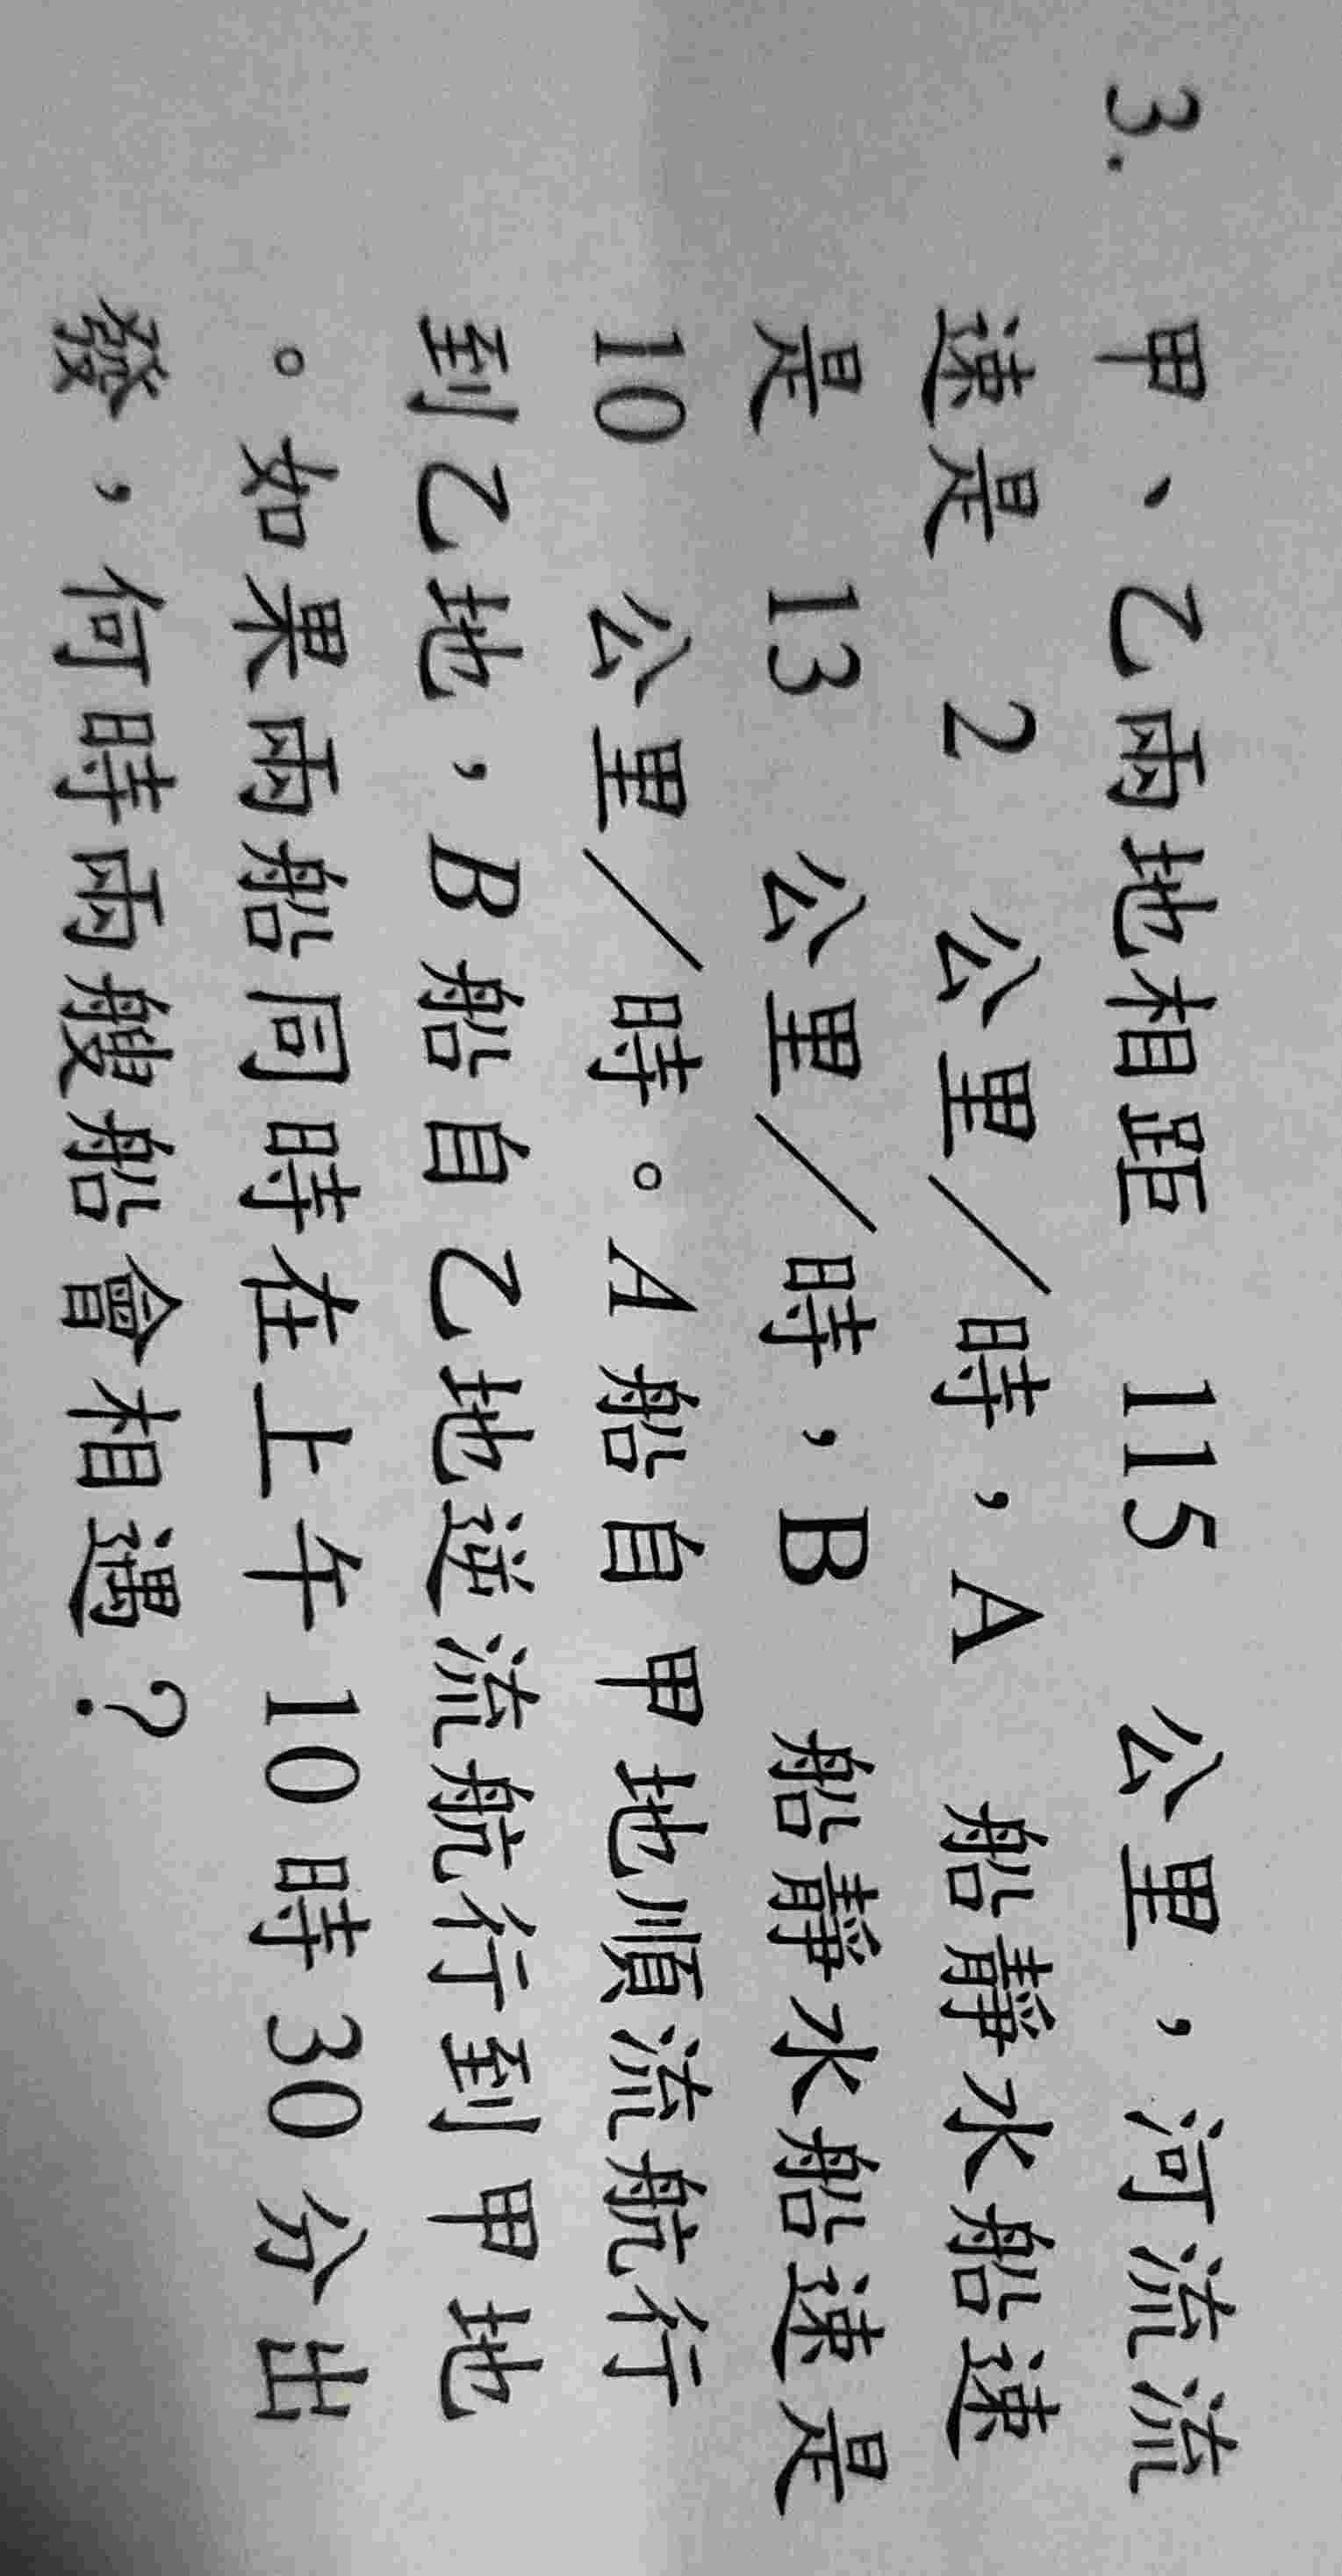 3. 甲、乙兩地相距 115 公里，河流流
速是 2 公里／時，A 船靜水船速
是 13 公里／時，B 船靜水船速是
10 公里／時。A船自甲地順流航行
到乙地，B船自乙地逆流航行到甲地
。如果兩船同時在上午10時30分出
發，何時兩艘船會相遇？